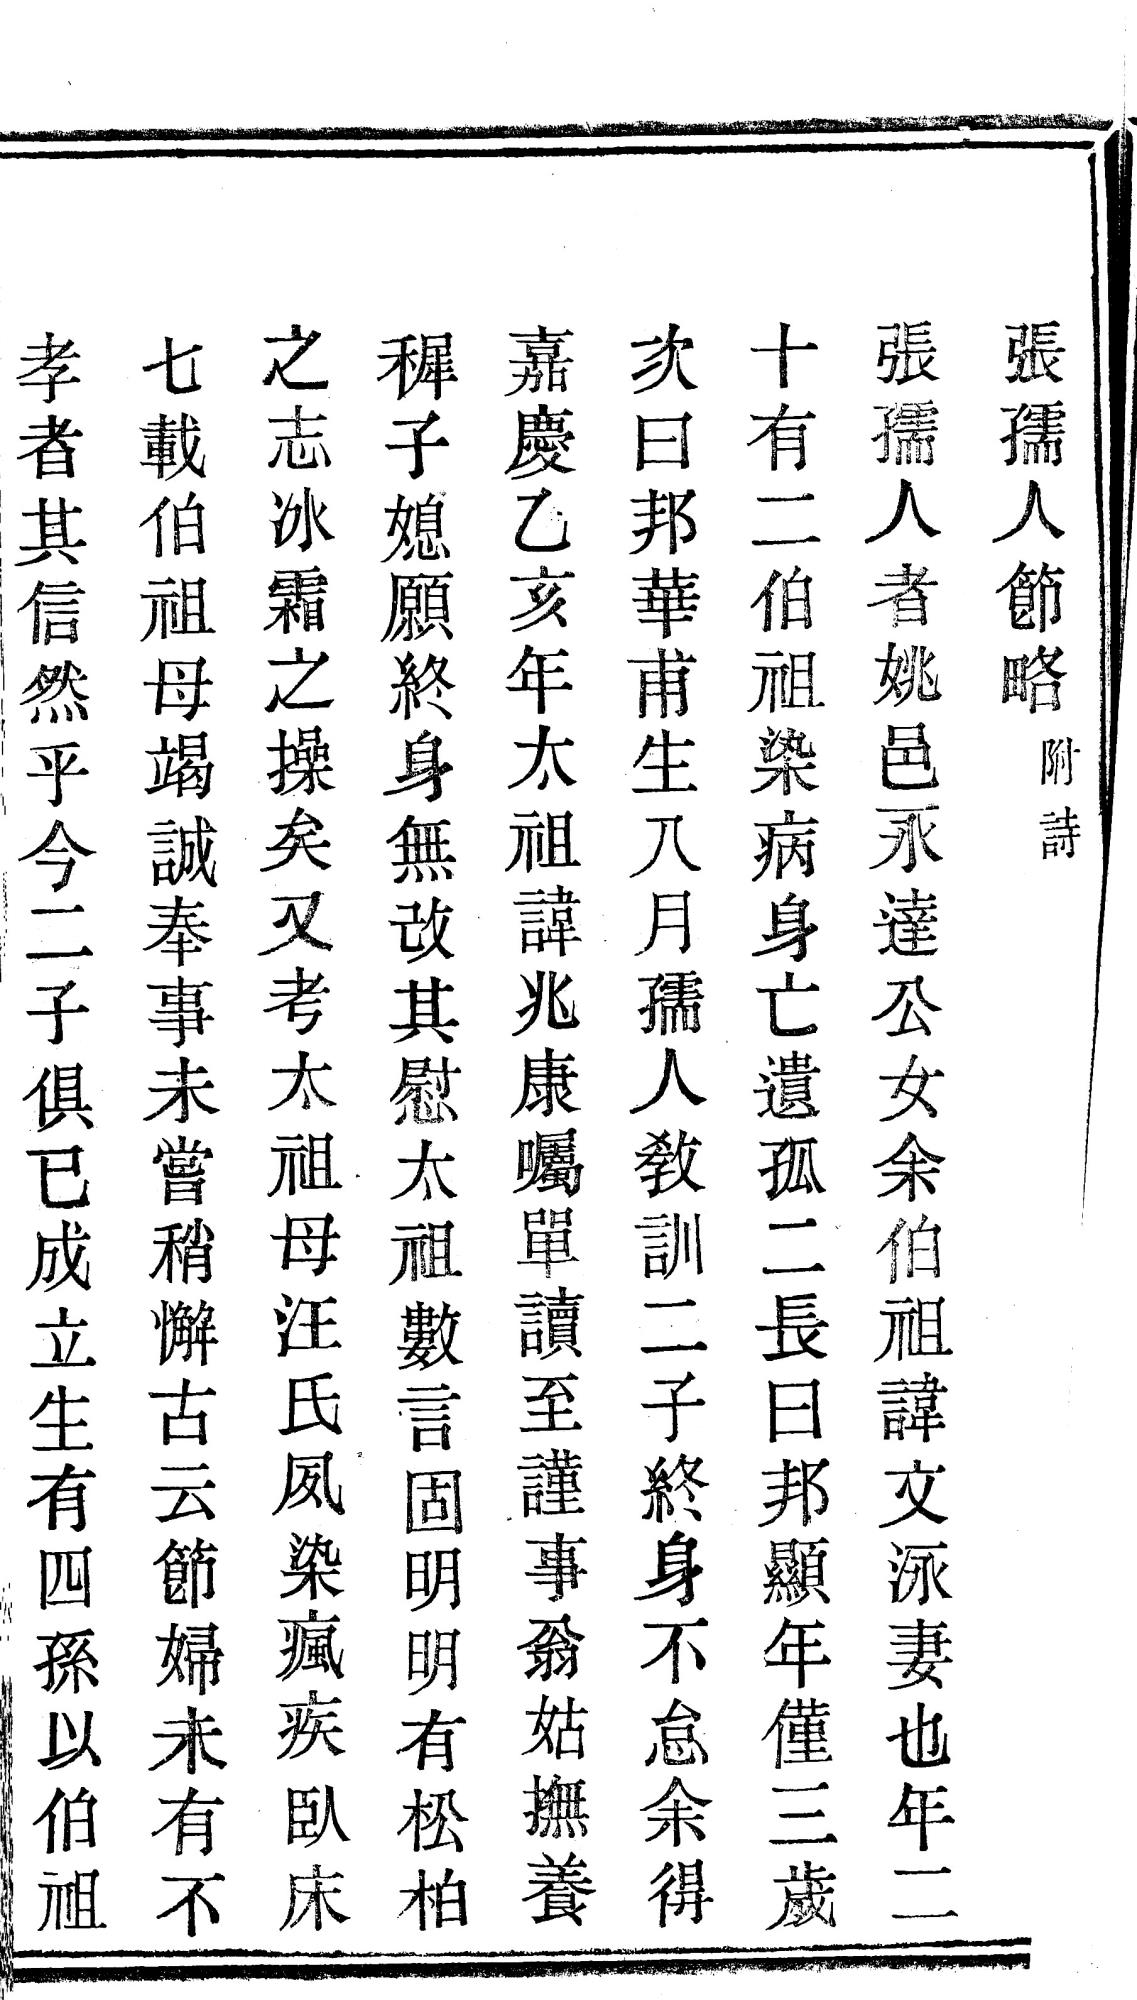 張孺人節略附詩
張孺人者姚邑永達公女余伯祖諱文泳妻也年二
十有二伯祖染病身亡遺孤二長曰邦顯年僅三歲
次曰邦華甫生八月孺人教訓二子終身不怠余得
嘉慶乙亥年太祖諱兆康囑單讀至謹事翁姑撫養
穉子媳願終身無改其慰太祖數言固明明有松柏
之志冰霜之操矣又考太祖母汪氏夙染瘋疾臥床
七載伯祖母竭誠奉事未嘗稍懈古云節婦未有不
孝者其信然乎今二子俱已成立生有四孫以伯祖